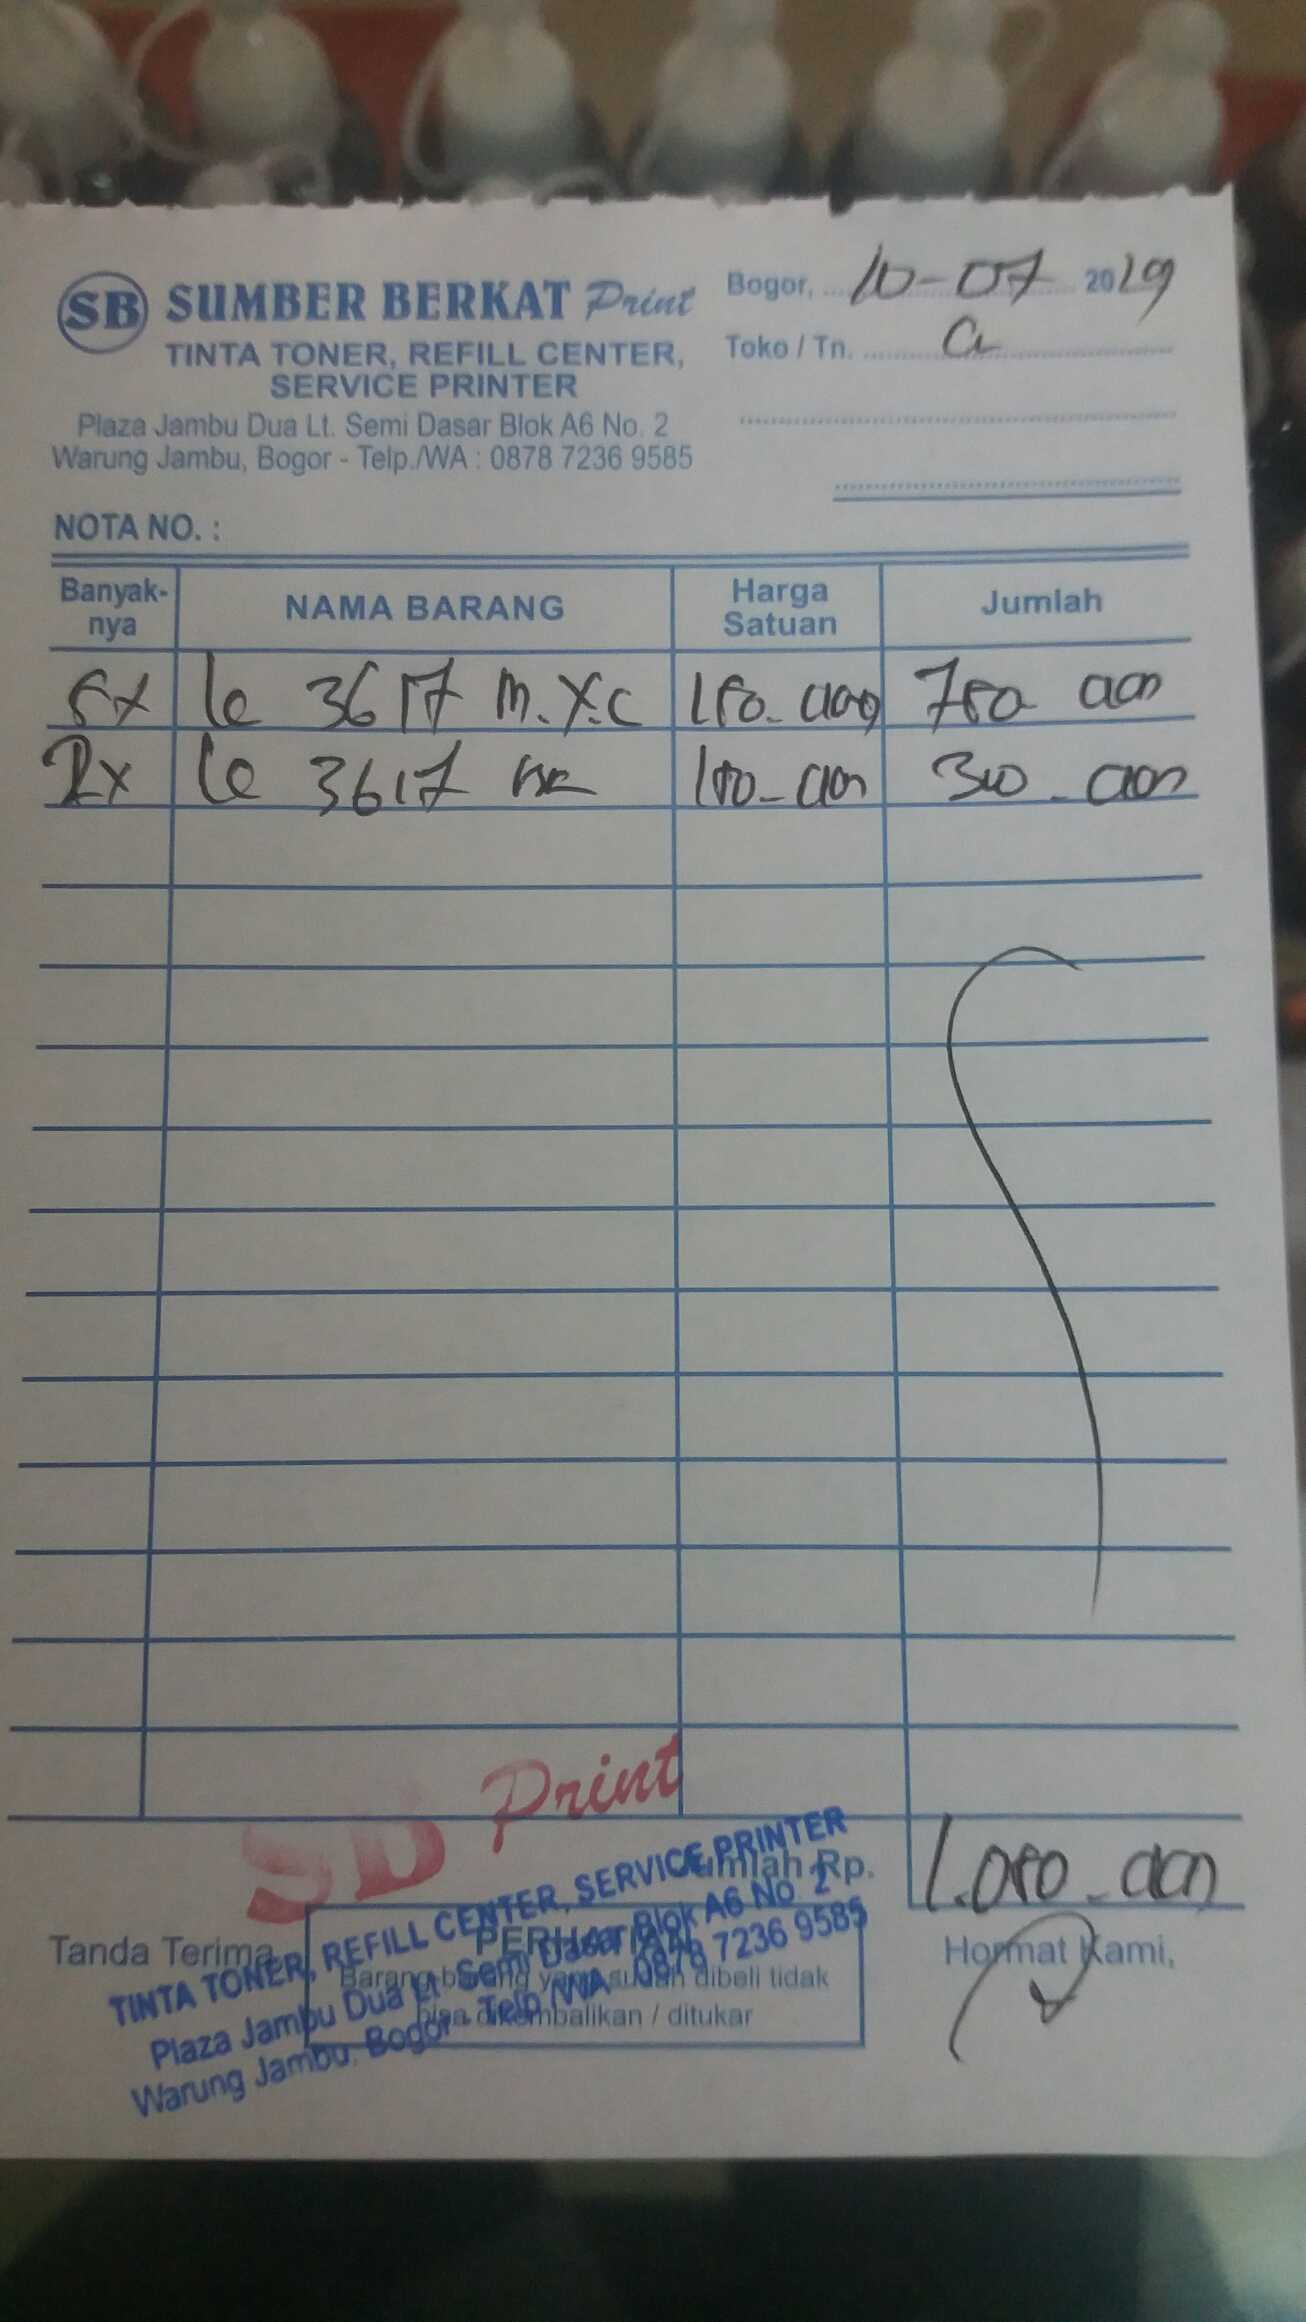 SB SUMBER BERKAT Print
TINTA TONER, REFILL CENTER,
SERVICE PRINTER
Plaza Jambu Dua Lt. Semi Dasar Blok A6 No. 2
Warung Jambu, Bogor - Telp./WA : 0878 7236 9585
Bogor, 10-07 2019
Toko / Tn.
NOTA NO. :
Banyak-nya NAMA BARANG Harga Satuan Jumlah
5x le 3617 M.Y.C 150.000 750 000
2x le 3617 BK 150-000 300.000
Jumlah Rp. 1.050.000
Tanda Terima,
PERHATIAN
Barang-barang yang sudah dibeli tidak
bisa dikembalikan / ditukar
Hormat Kami,
SB Print
TINTA TONER, REFILL CENTER, SERVICE PRINTER
Plaza Jambu Dua Lt. Semi Dasar Blok A6 No. 2
Warung Jambu, Bogor - Telp./WA : 0878 7236 9585